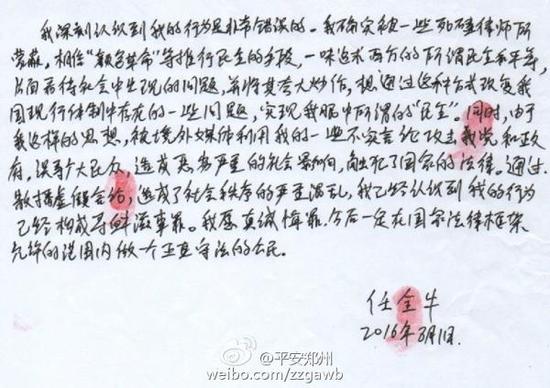 我深刻认识到我的行为是非常错误的。我确实被一些死磕律师所
蒙蔽，相信“颜色革命”等推行民主的手段，一味追求西方的所谓民主和平等，
片面看待社会中出现的问题，并将其夸大炒作，想通过这种方式改变我
国现行体制中存在的一些问题，实现我眼中所谓的“民主”。同时，由于
我这样的思想，被境外媒体利用我的一些不实言论攻击我党和政
府，误导广大民众，造成恶劣严重的社会影响，触犯了国家的法律。通过
散播虚假言论，造成了社会秩序的严重混乱，我已经认识到我的行为
已经构成寻衅滋事罪。我愿真诚悔罪，今后一定在国家法律框架
允许的范围内做一个正直守法的公民。
任全牛
2016年8月1日.
@平安郑州
weibo.com/zzgawb